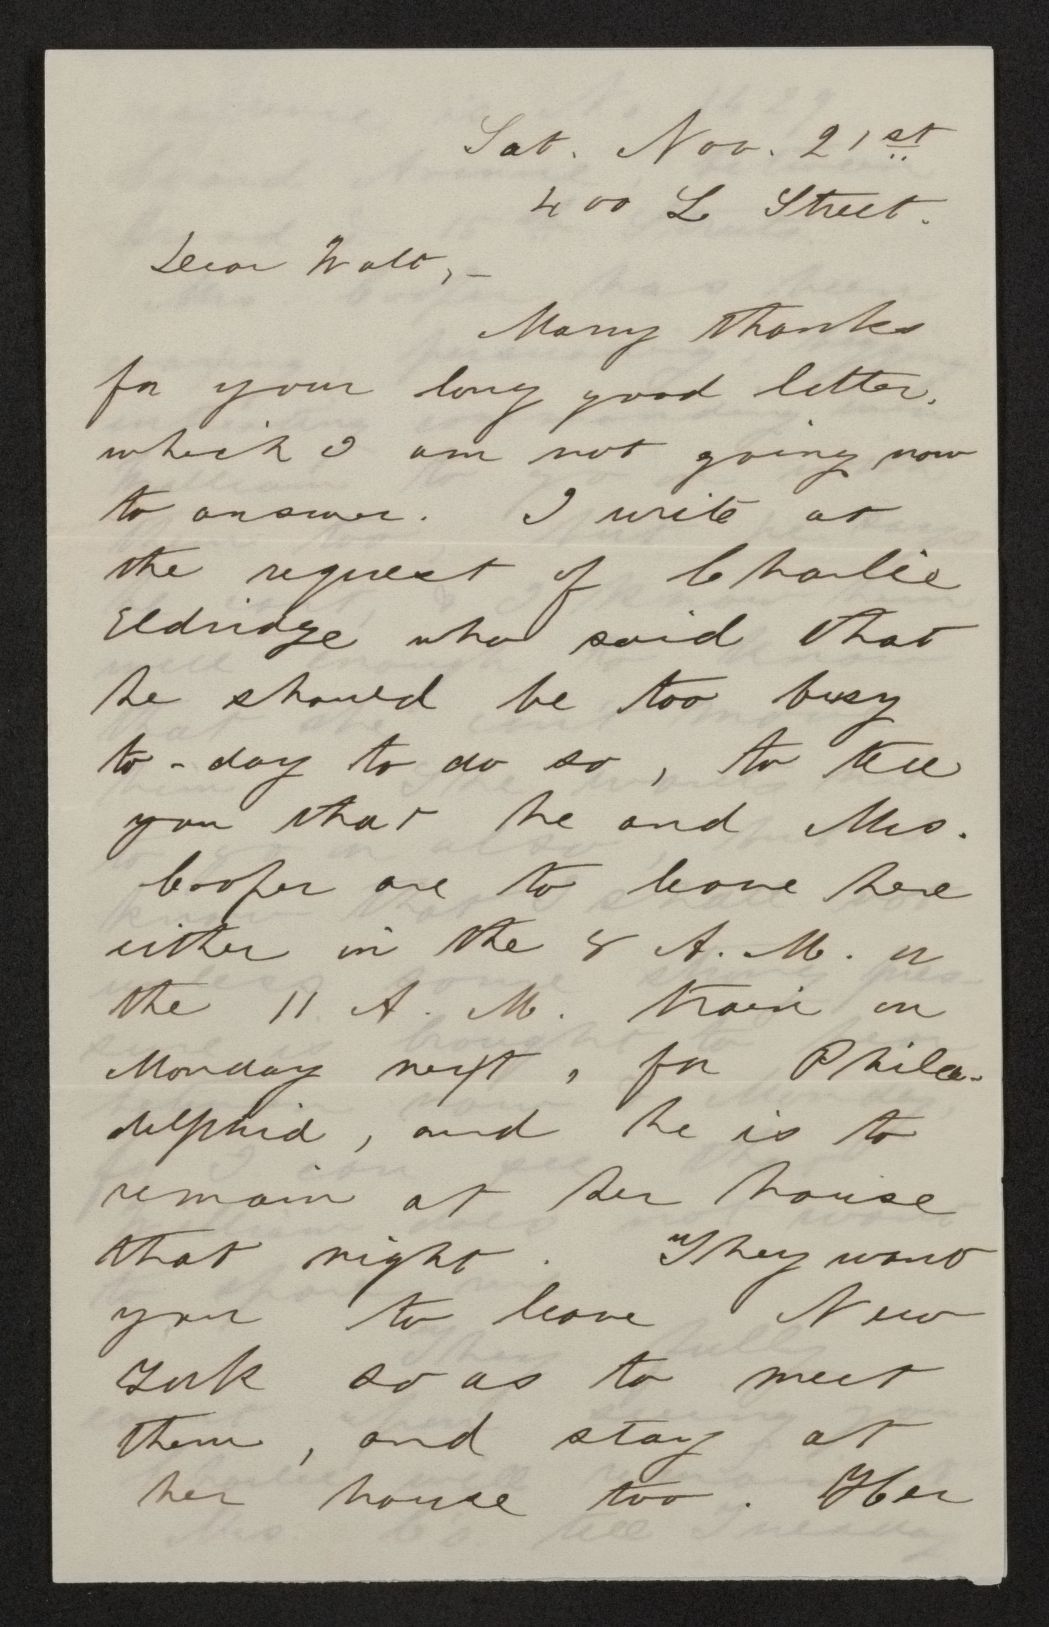 Sat. Nov. 21st
400 L Street.
Dear Walt,—
Many thanks
for your long good letter,
which I am not going now
to answer. I write at
the request of Charlie
Eldridge who said that
he should be too busy
to-day to do so, to tell
you that he and Mrs.
Cooper are to leave here
either in the 8 A.M. or
the 11 A.M. train on
Monday next, for Phila-
delphia, and he is to
remain at her house
that night. They want
you to leave New
York so as to meet
them, and stay at
her house too. Her